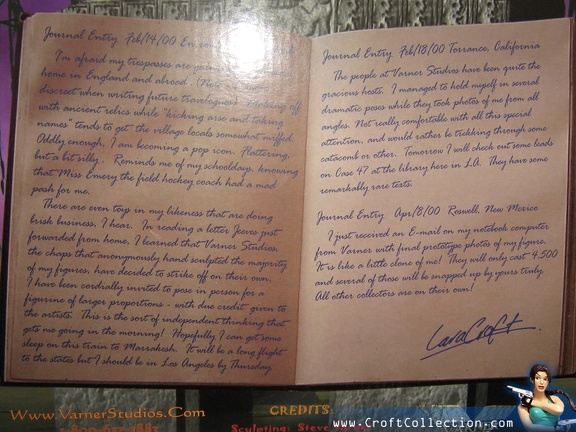 Journal Entry Feb/14/00 En
I'm afraid my trespasses are
home in England and abroad. (Note
discreet when writing future travelogues). Making off
with ancient relics while "kicking arse and taking
names" tends to get the village locals somewhat miffed.
Oddly enough, I am becoming a pop icon. Flattering,
but a bit silly. Reminds me of my schooldays, knowing
that Miss Emery the field hockey coach had a mad
pash for me.
There are even toys in my likeness that are doing
brisk business, I hear. In reading a letter Jeeves just
forwarded from home, I learned that Varner Studios,
the chaps that anonymously hand sculpted the majority
of my figures, have decided to strike off on their own.
I have been cordially invited to pose in person for a
figurine of larger proportions - with due credit given to
the artists. This is the sort of independent thinking that
gets me going in the morning! Hopefully I can get some
sleep on this train to Marrakesh. It will be a long flight
to the states but I should be in Los Angeles by Thursday.
Journal Entry Feb/18/00 Torrance, California
The people at Varner Studios have been quite the
gracious hosts. I managed to hold myself in several
dramatic poses while they took photos of me from all
angles. Not really comfortable with all this special
attention, and would rather be trekking through some
catacomb or other. Tomorrow I will check out some leads
on Case 47 at the library here in L.A. They have some
remarkably rare texts.
Journal Entry Apr/8/00 Roswell, New Mexico
I just received an E-mail on my notebook computer
from Varner with final prototype photos of my figure.
It is like a little clone of me! They will only cast 4,500
and several of those will be snapped up by yours truly.
All other collectors are on their own!
Lara Croft
www.VarnerStudios.Com
CREDITS
Sculpting: Steve
www.CroftCollection.com